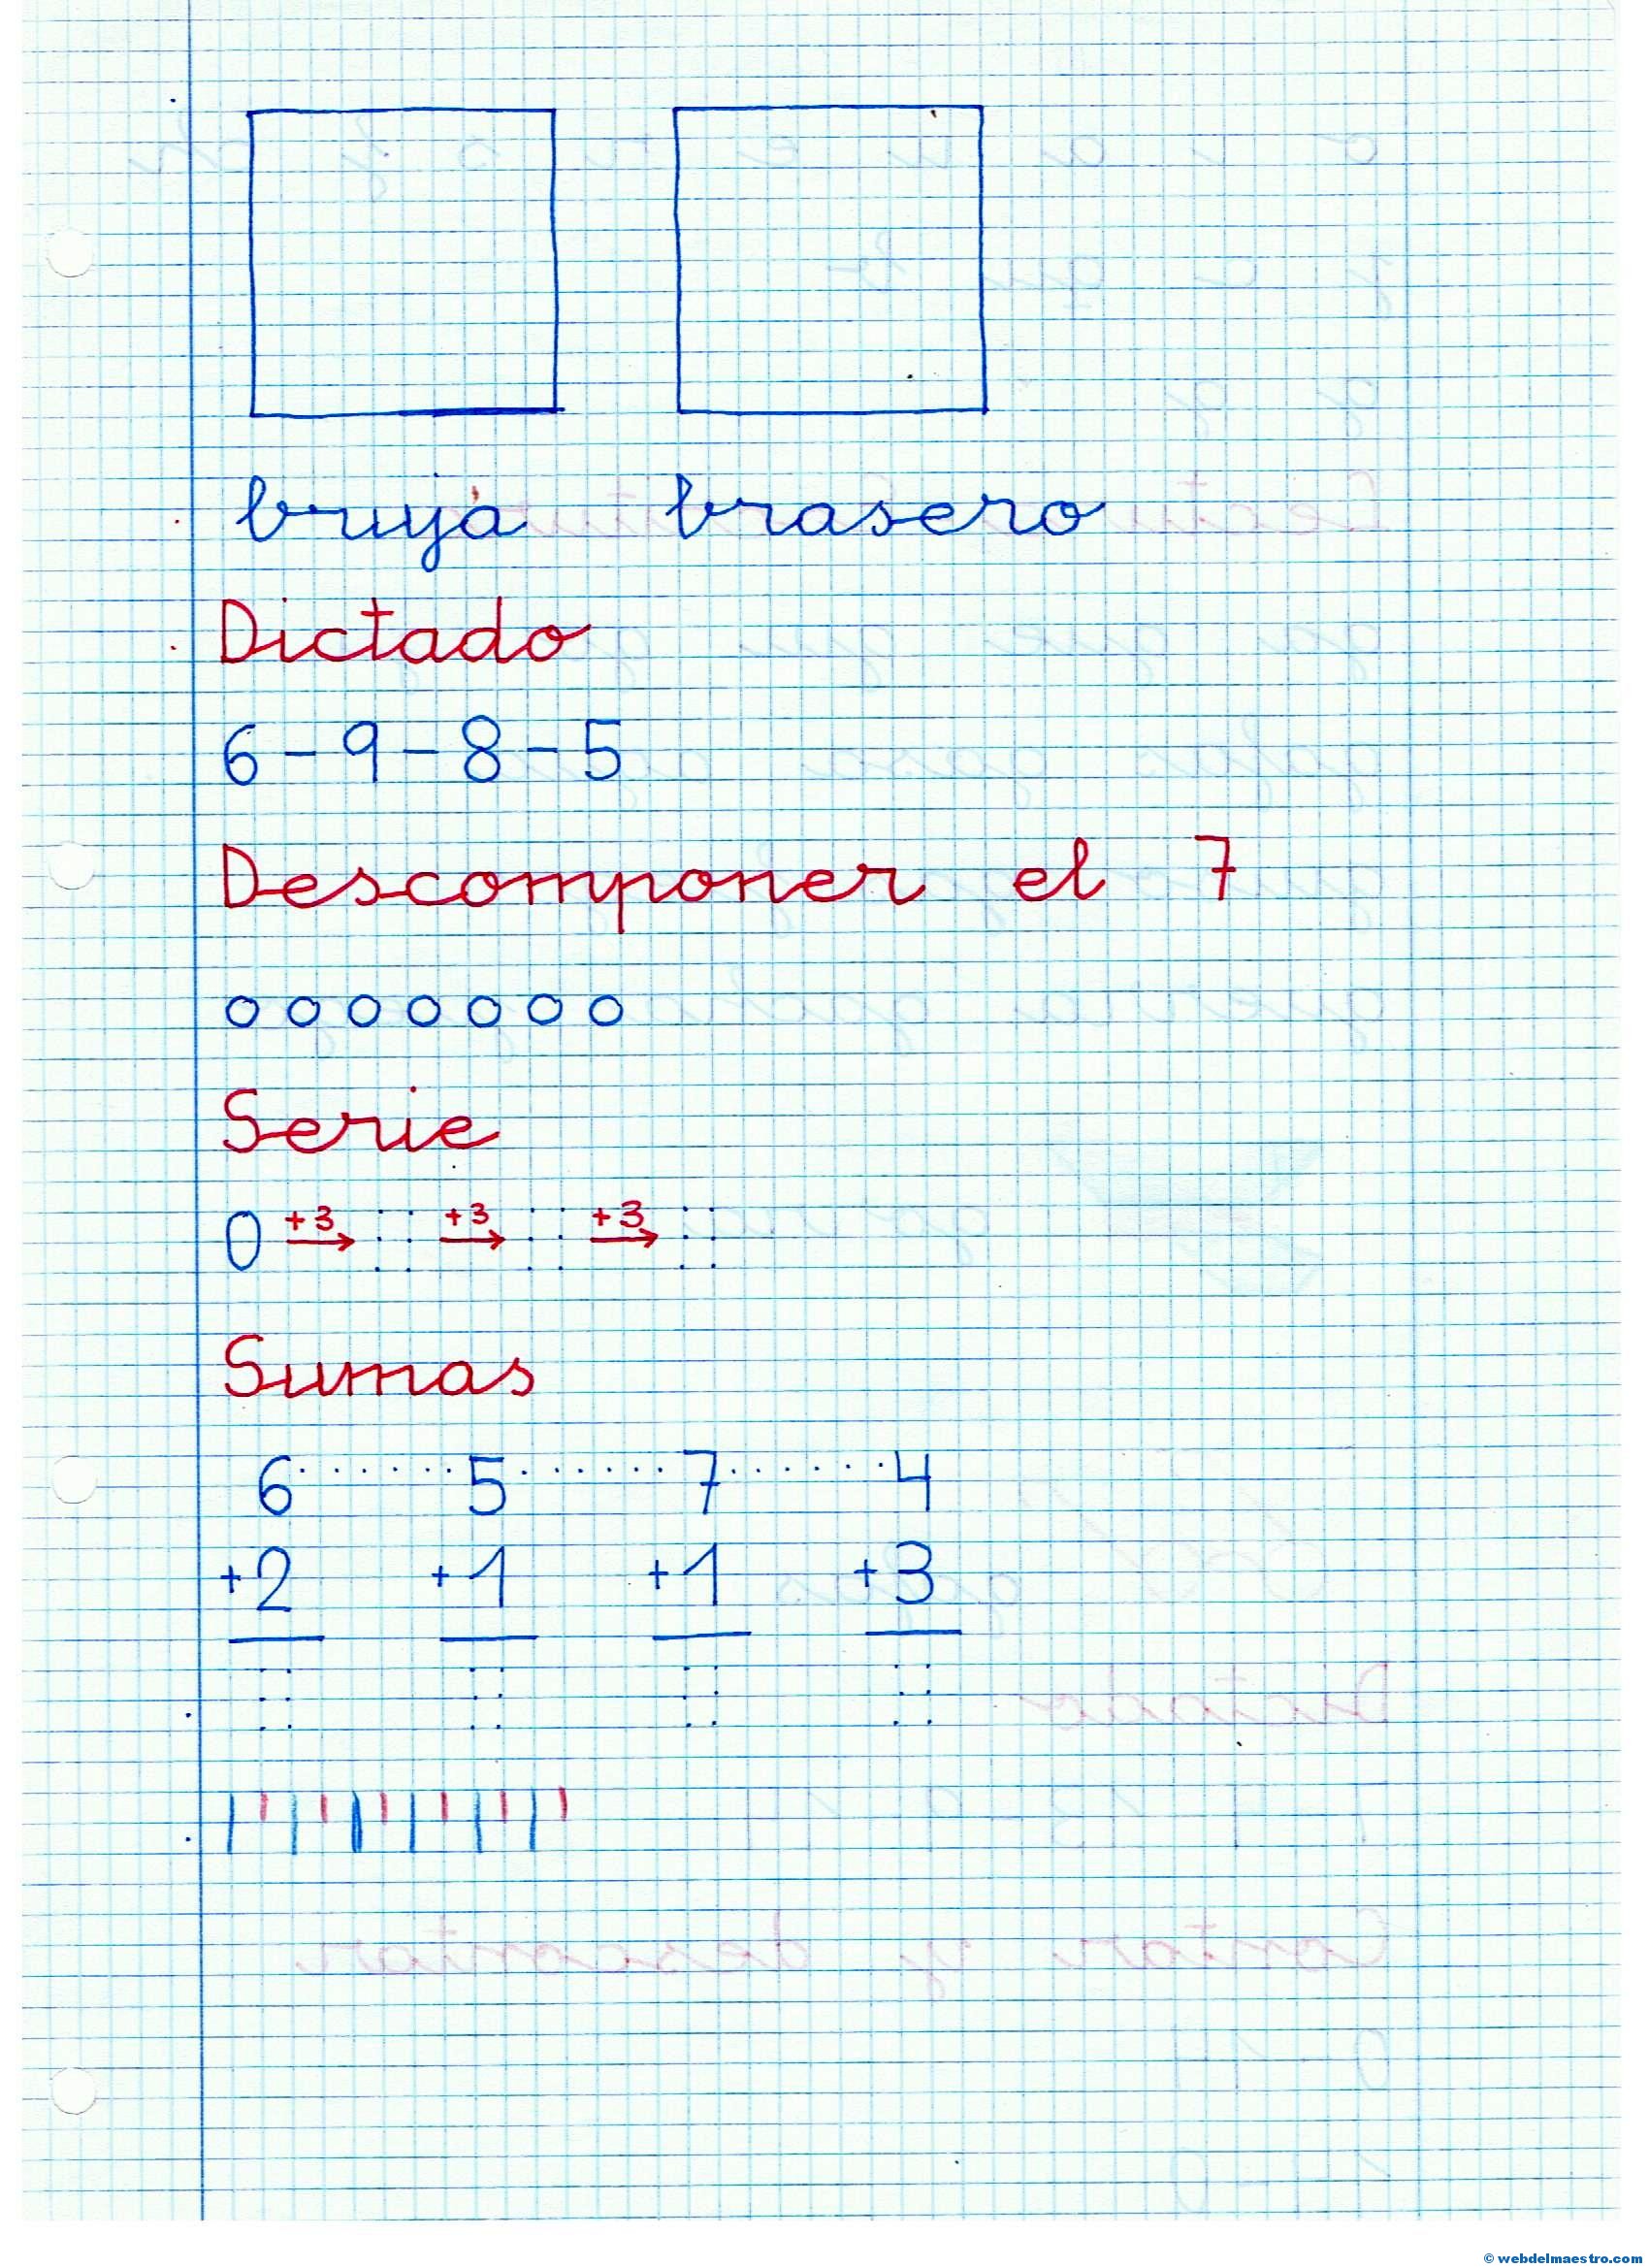 bruja brasero
Dictado
6-9-8-5
Descomponer el 7
0 0 0 0 0 0 0
Serie
0 +3→ +3→ +3→
Sumas
6 5 7 4
+2 +1 +1 +3
© webdelmaestro.com